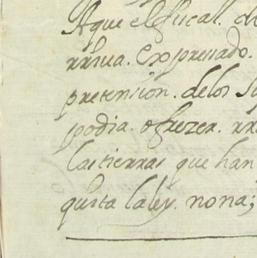 Aque el fiscal. di
rriua. Expressado.
pretension. delos Su
podia. ofrezer. rr
las tierras que han
quita la ley. nona;